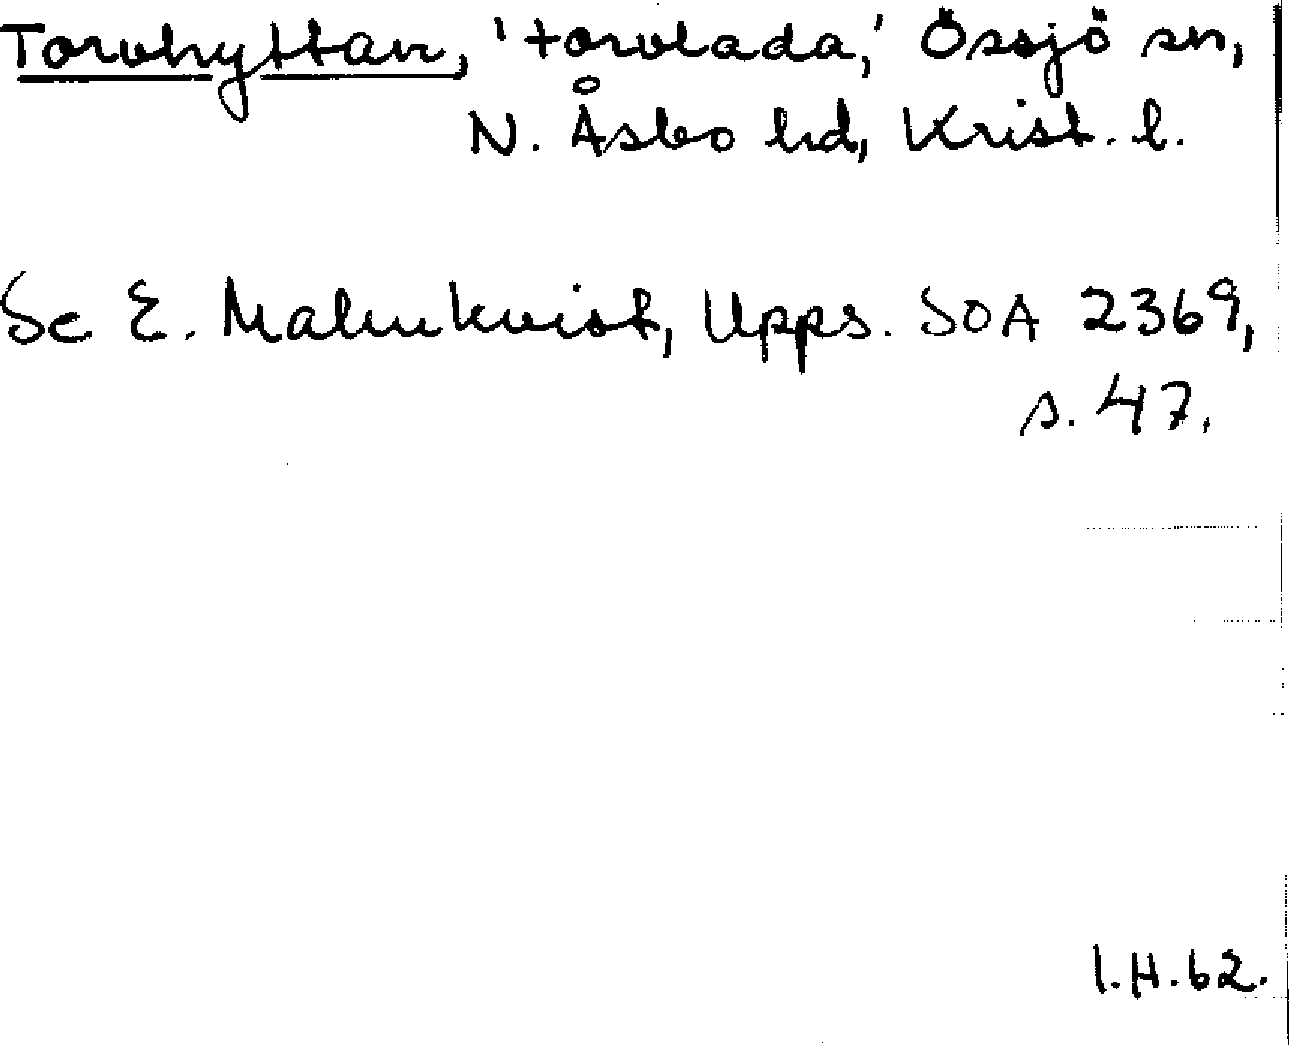 Torvhyttan, 'torvlada,' Össjö sn,
N. Åsbo hd, Krist. l.
Se E. Malmkvist, Upps. SOA 2369,
s. 47.
I.H.62.